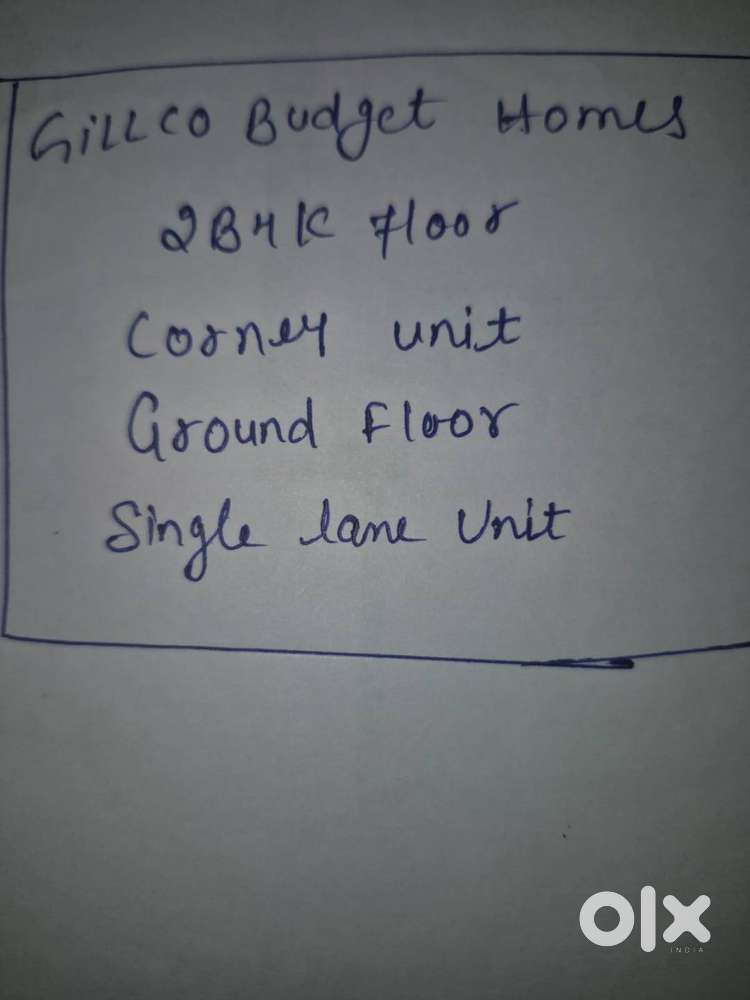 Gillco Budget Homes
2BHK Floor
Corner unit
Ground Floor
Single lane Unit
olx
INDIA